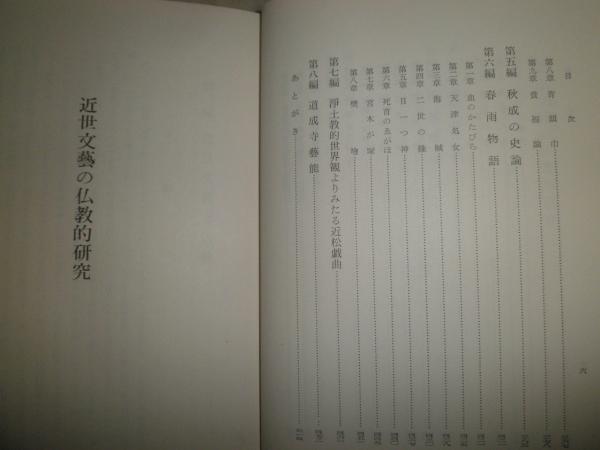 目次
第八章 青頭巾
第九章 貧福論
第五編 秋成の史論
第六編 春雨物語
第一章 血のかたびら
第二章 天津処女
第三章 海賊
第四章 二世の縁
第五章 目一つ神
第六章 死首のゑがほ
第七章 宮木が塚
第八章 樊噲
第七編 浄土教的世界観よりみたる近松戯曲
第八編 道成寺藝能
あとがき
六
近世文藝の仏教的研究